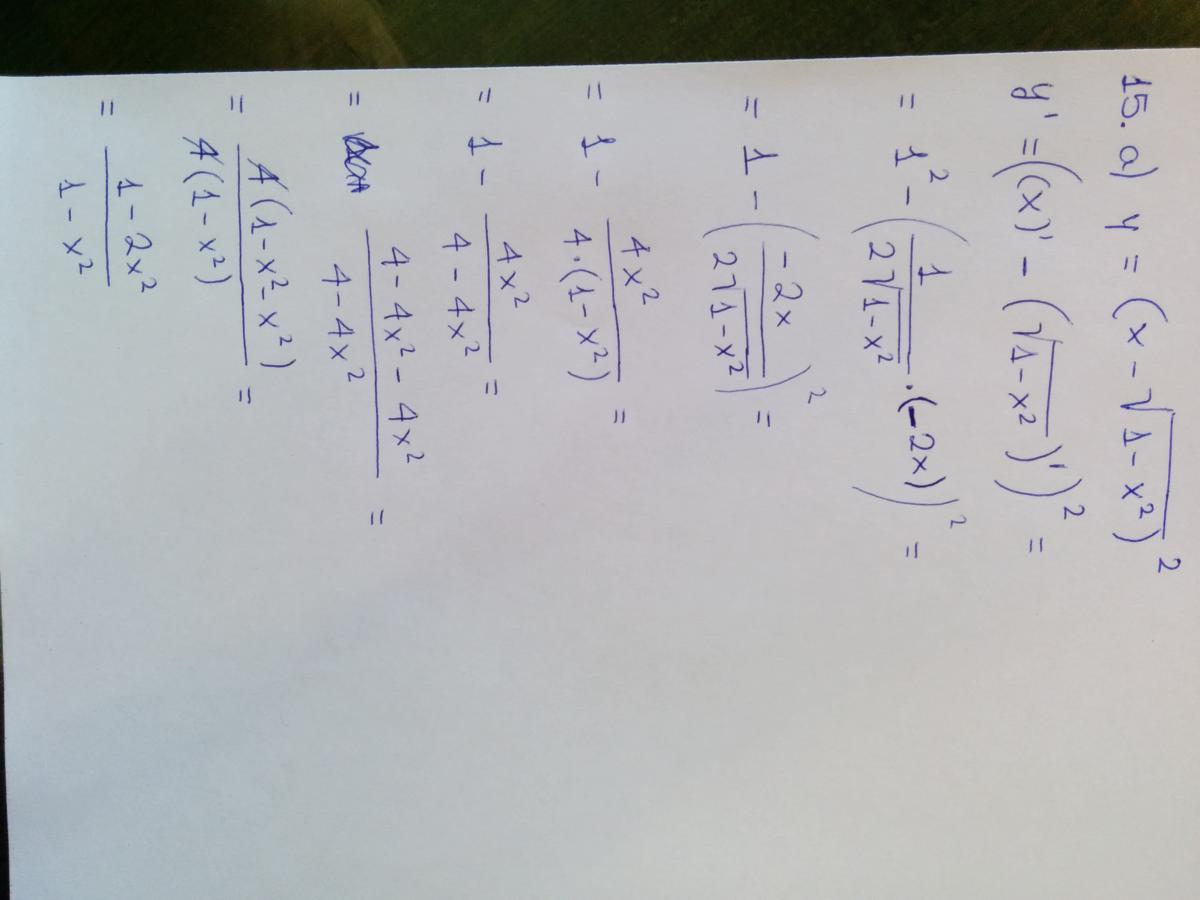 15. a) y = (x - √(1 - x²))²
y' = ((x)' - (√(1-x²))')² =
= 1² - (1/(2√(1-x²)) · (-2x))² =
= 1 - (-2x/(2√(1-x²)))² =
= 1 - 4x²/(4·(1-x²)) =
= 1 - 4x²/(4 - 4x²) =
= (4 - 4x² - 4x²)/(4 - 4x²) =
= 4(1-x²-x²)/(4(1-x²)) =
= (1 - 2x²)/(1 - x²)